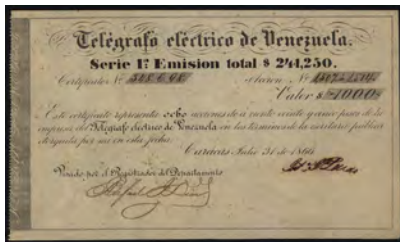 Telégrafo eléctrico de Venezuela.
Serie 1ª Emision total $ 244,250.
Certificado Nº Accion Nº
Valor $ 1000
Este certificado representa ocho acciones de a ciento veinte y cinco pesos de la
empresa del Telégrafo eléctrico de Venezuela en los terminos de la escritura publica
otorgada por mi en esta fecha.
Caracas Julio 31 de
Visado por el Registrador del Departamento